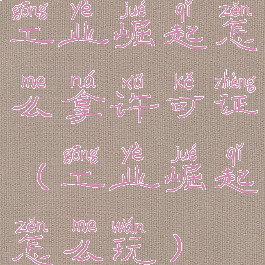 gōng yè jué qǐ zěn
工业崛起怎
me ná xǔ kě zhèng
么拿许可证
gōng yè jué qǐ
（工业崛起
zěn me wán
怎么玩）